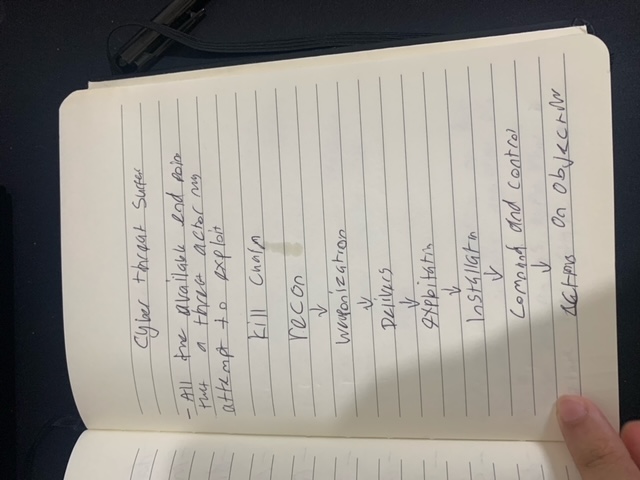 Cyber threat Surfer
- All the available end poin
that a threat actor my
attempt to exploit
kill Chain
recon
↓
Weaponization
↓
Delivers
↓
exploitatin
↓
Installatin
↓
Command and control
↓
Actions On Objectiv